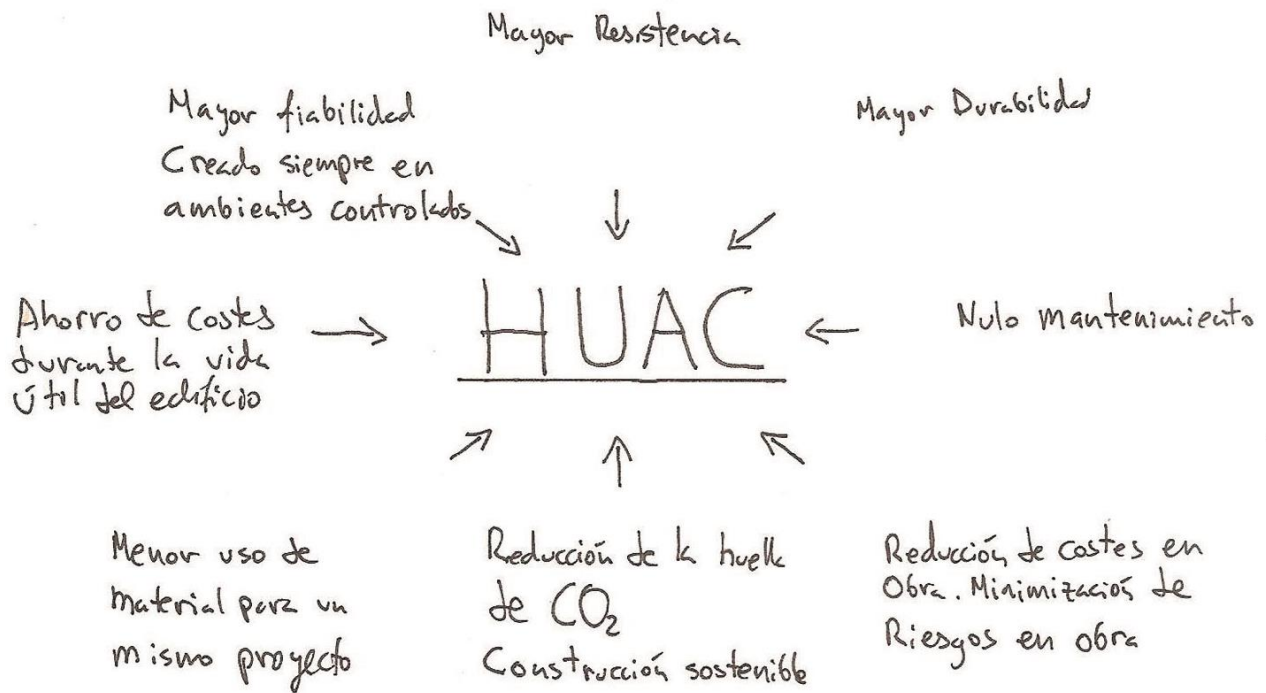 Mayor Resistencia
Mayor fiabilidad
Creado siempre en
ambientes controlados
Mayor Durabilidad
HUAC
Ahorro de costes
durante la vida
útil del edificio
Nulo mantenimiento
Menor uso de
material para un
mismo proyecto
Reducción de la huella
de CO₂
Construcción sostenible
Reducción de costes en
Obra. Minimización de
Riesgos en obra